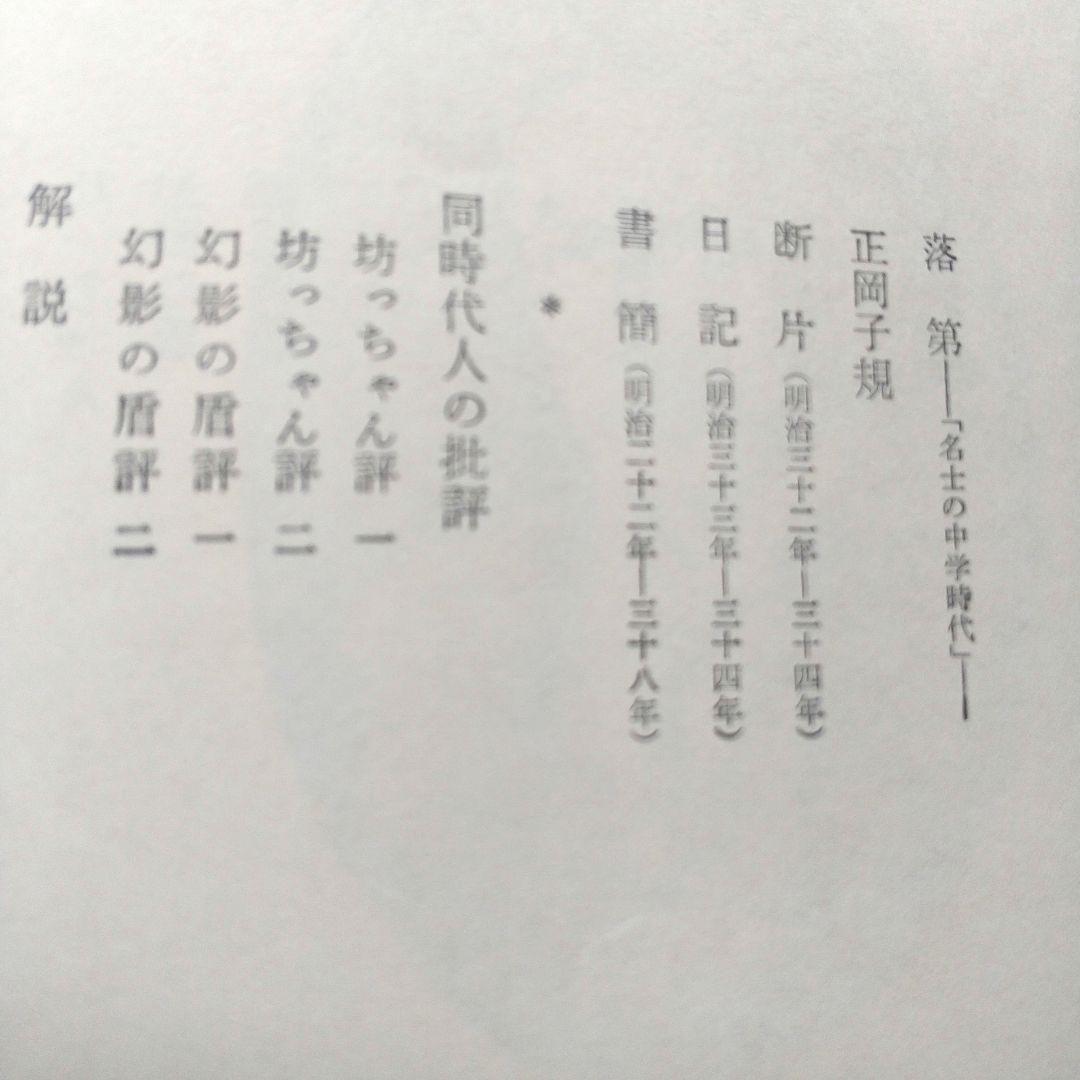 落第――「名士の中学時代」――
正岡子規
断片（明治三十二年―三十四年）
日記（明治三十三年―三十四年）
書簡（明治二十二年―三十八年）
＊
同時代人の批評
坊っちゃん評 一
坊っちゃん評 二
幻影の盾評 一
幻影の盾評 二
解説